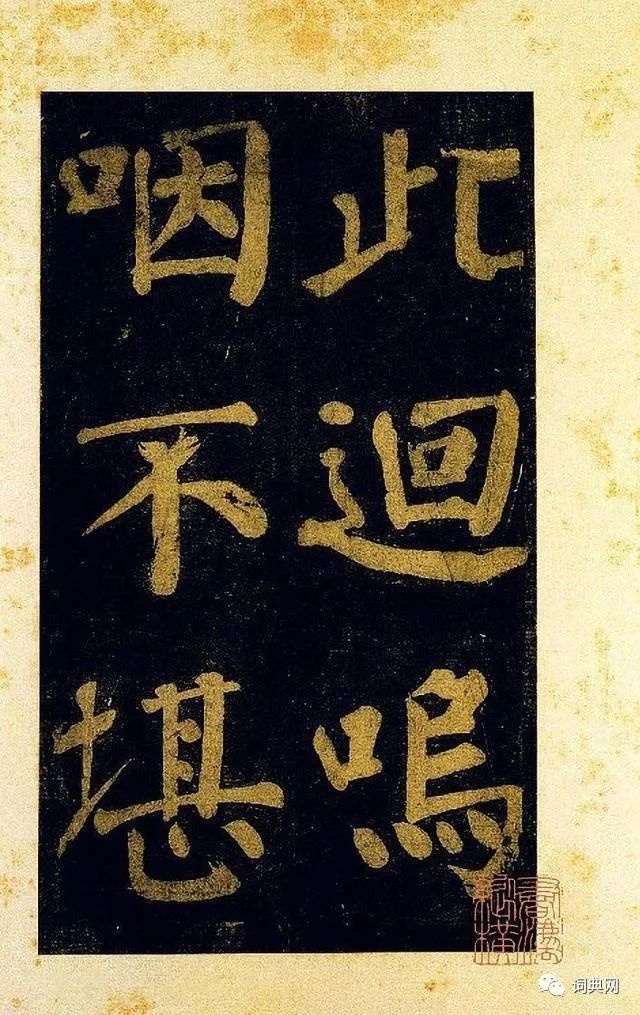 此迴嗚
咽不堪
词典网